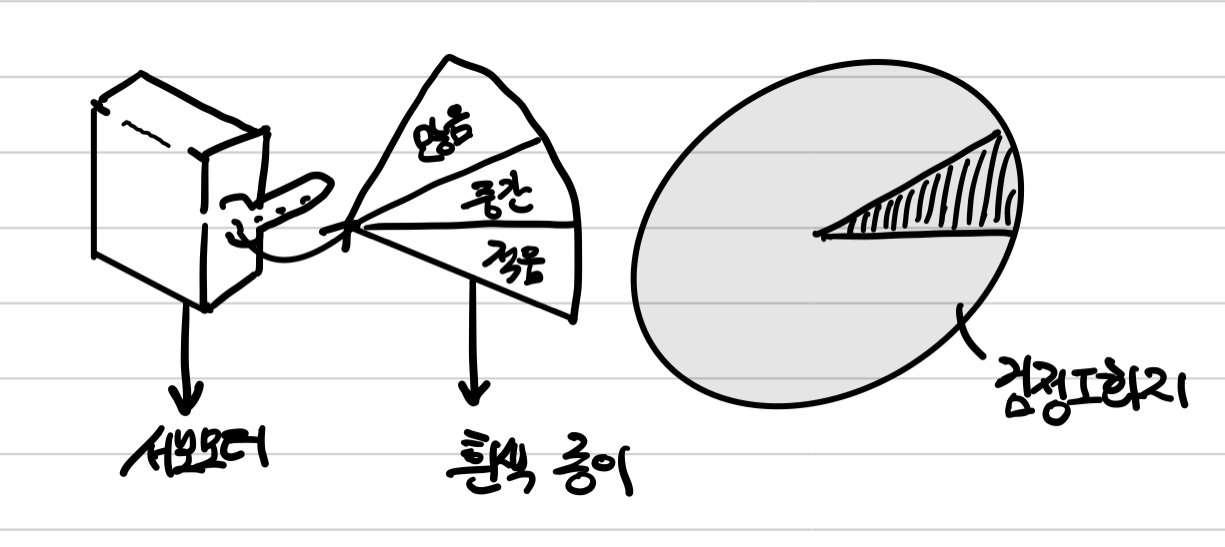 많음
중간
적음
서보모터
흰색 종이
검정도화지